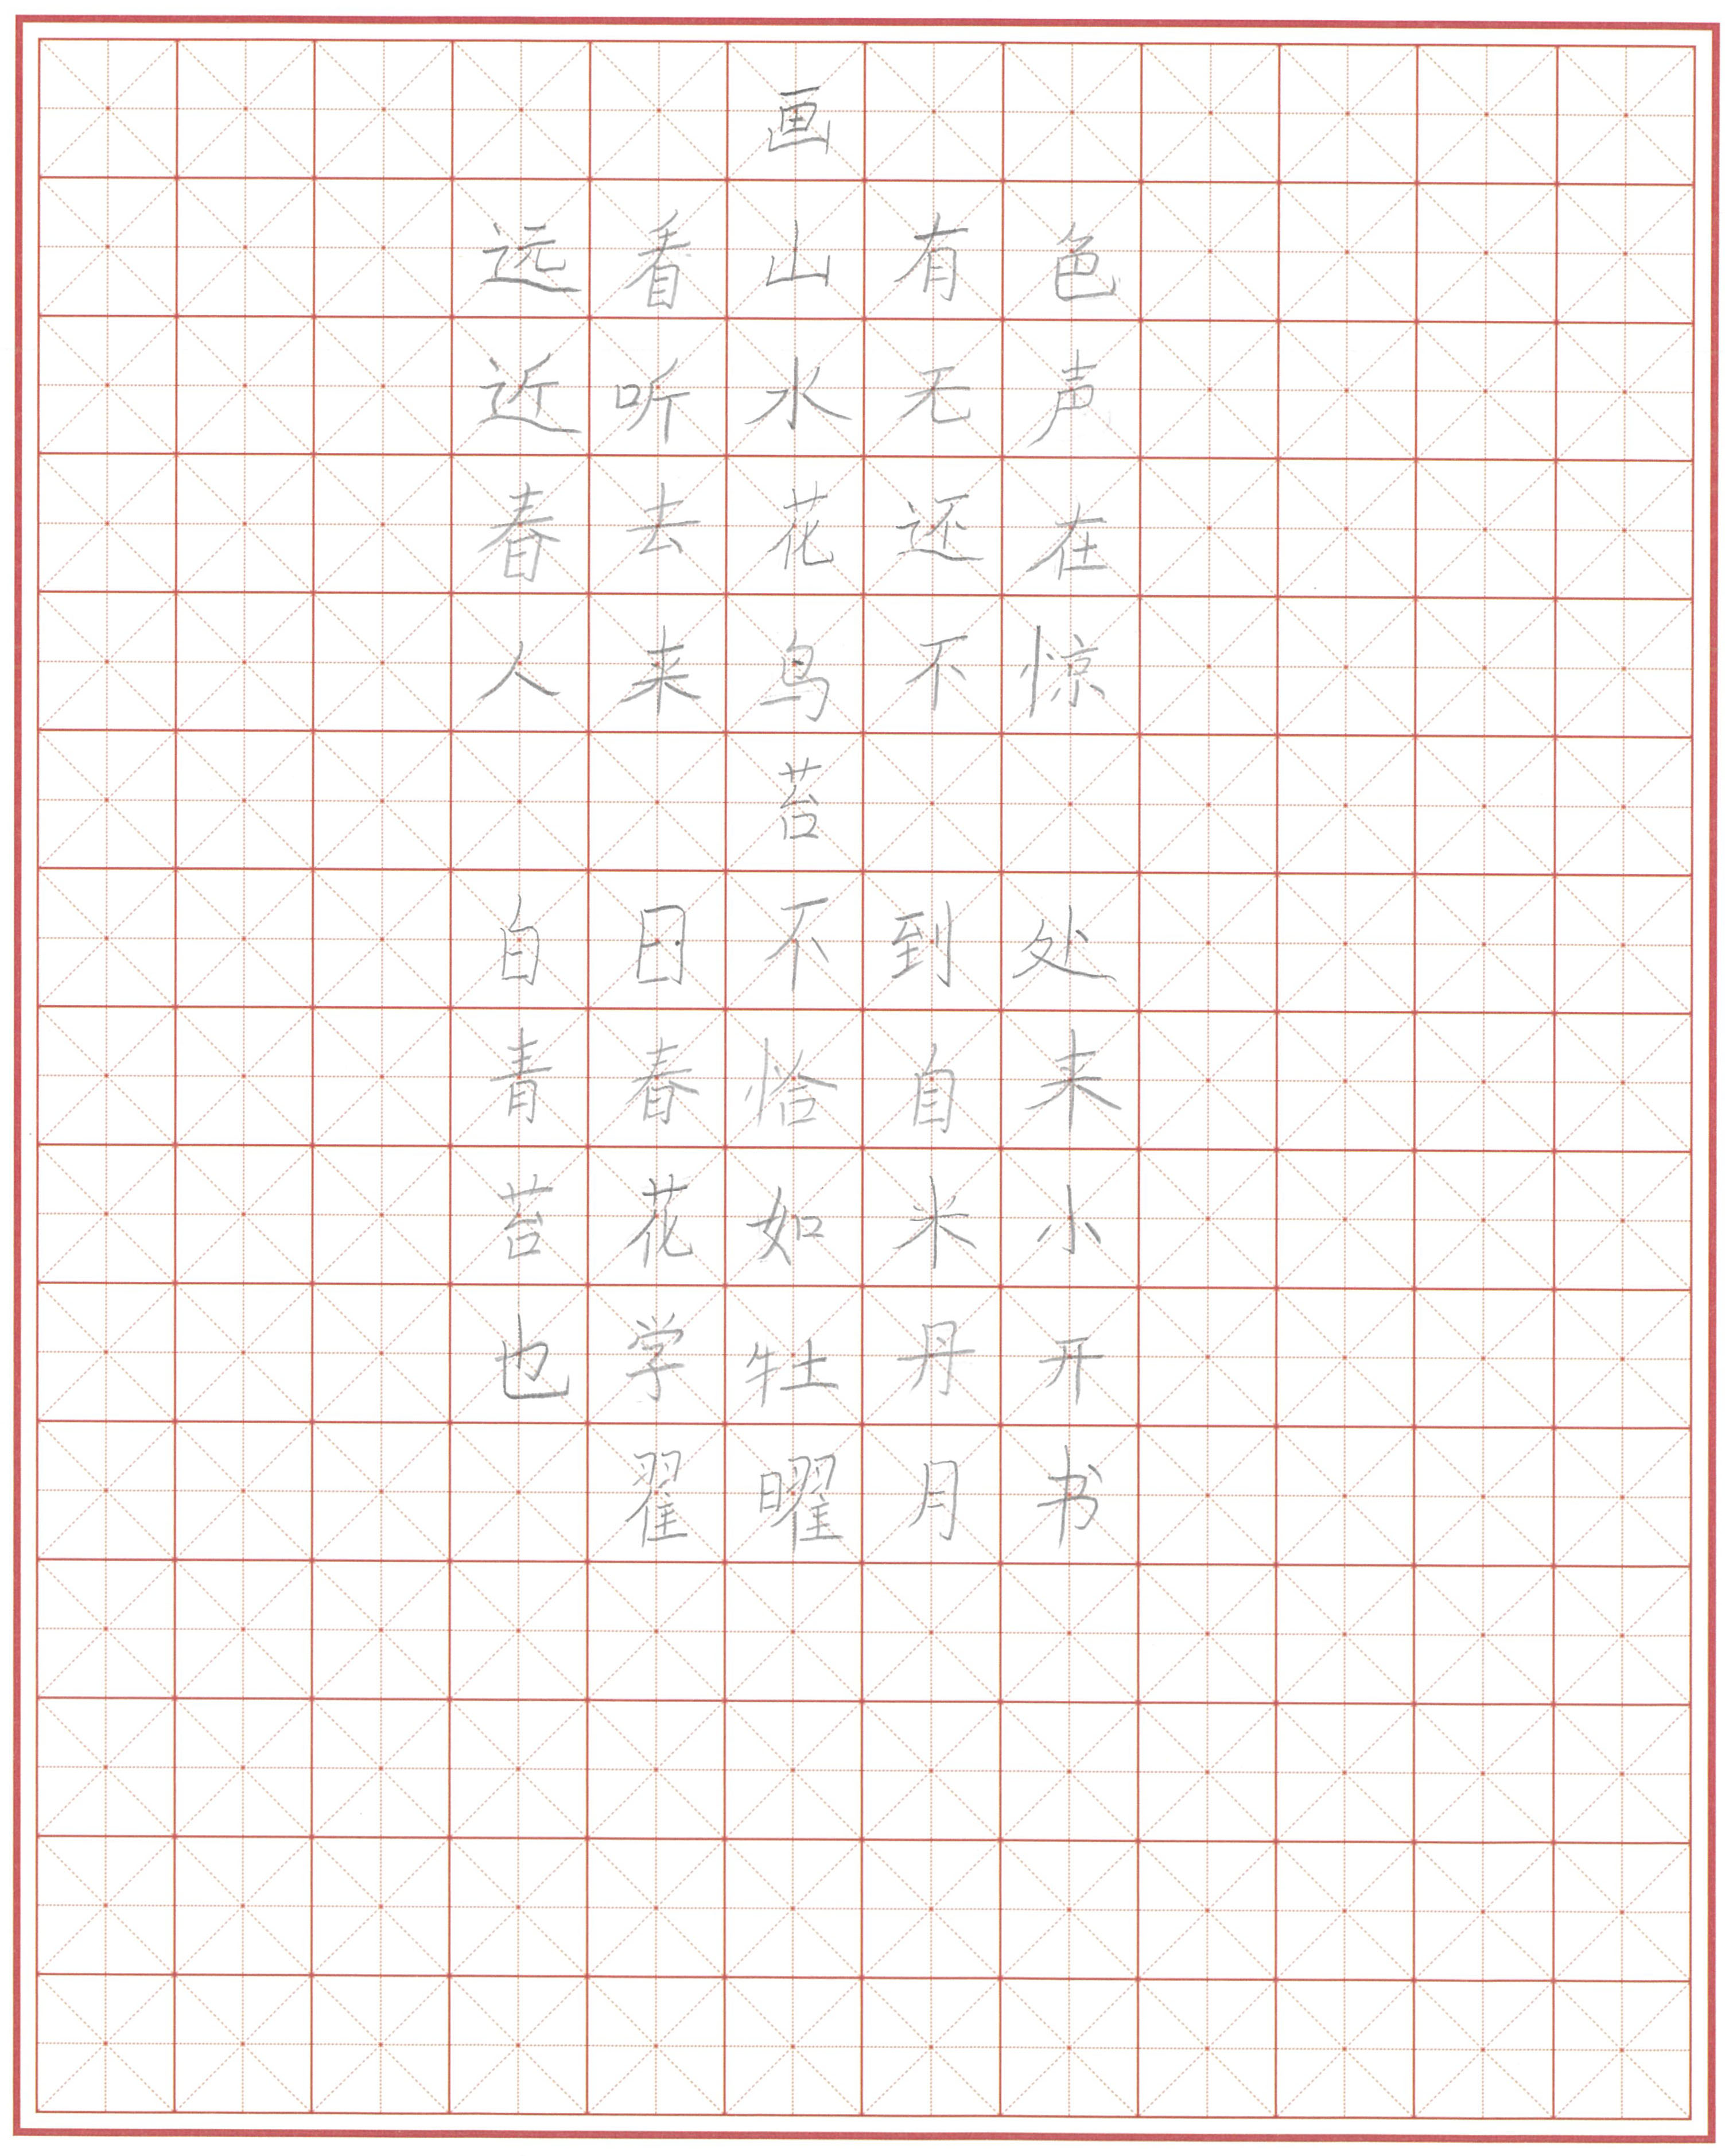 画
远看山有色
近听水无声
春去花还在
人来鸟不惊
苔
白日不到处
青春恰自来
苔花如米小
也学牡丹开
翟曜月书